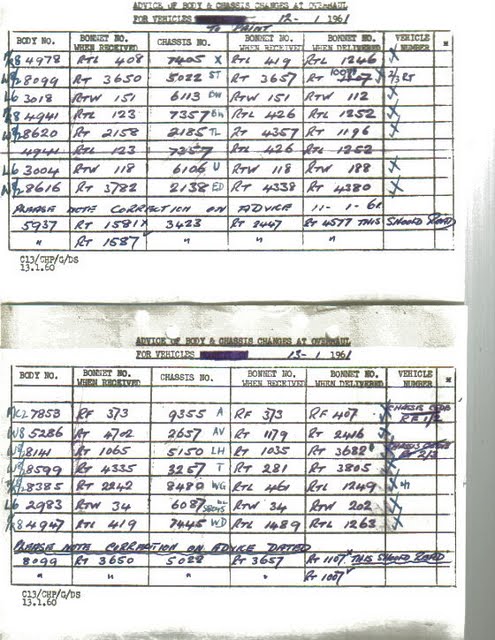 ADVICE OF BODY & CHASSIS CHANGES AT OVERHAUL
FOR VEHICLES 12-1 1961
TO PAINT
BODY NO. BONNET NO. WHEN RECEIVED CHASSIS NO. BONNET NO. BONNET NO. WHEN DELIVERED VEHICLE NUMBER
4978 RTL 408 7405 X RTL 419 RTL 1246
8099 RT 3650 5022 ST RT 3657 1007 2/3 RT
L6 3018 RTW 151 6113 BW RTW 151 RTW 112
4941 RTL 123 7357 BW RTL 426 RTL 1252
8620 RT 2158 2185 TL RT 4357 RT 1196
4941 RTL 123 7357 RTL 426 RTL 1252
L6 3004 RTW 118 6106 U RTW 118 RTW 188
8616 RT 3782 2138 ED RT 4338 RT 4380
PLEASE NOTE CORRECTION ON ADVICE 11-1-61
5937 RT 1581 3423 RT 2447 RT 4577 THIS SHOULD READ
" RT 1587 " " "
C13/CHP/G/DS
13.1.60
ADVICE OF BODY & CHASSIS CHANGES AT OVERHAUL
FOR VEHICLES 13-1 1961
BODY NO. BONNET NO. WHEN RECEIVED CHASSIS NO. BONNET NO. BONNET NO. WHEN DELIVERED VEHICLE NUMBER
7853 RF 373 9355 A RF 373 RF 407 CHASSIS CODE RF 1/2
W8 5286 RT 4702 2657 AV RT 1179 RT 2416
8141 RT 1065 5150 LH RT 1035 RT 3682 RT 2/3
8599 RT 4335 3257 T RT 281 RT 3805
8385 RT 2242 8480 WG RTL 461 RTL 1249
L6 2983 RTW 34 6087 RTW 34 RTW 202
4947 RTL 419 7445 WD RTL 1489 RTL 1263
PLEASE NOTE CORRECTION ON ADVICE DATED
8099 RT 3650 5022 RT 3657 RT 1107 THIS SHOULD READ
" " " " RT 1007
C13/CHP/G/DS
13.1.60